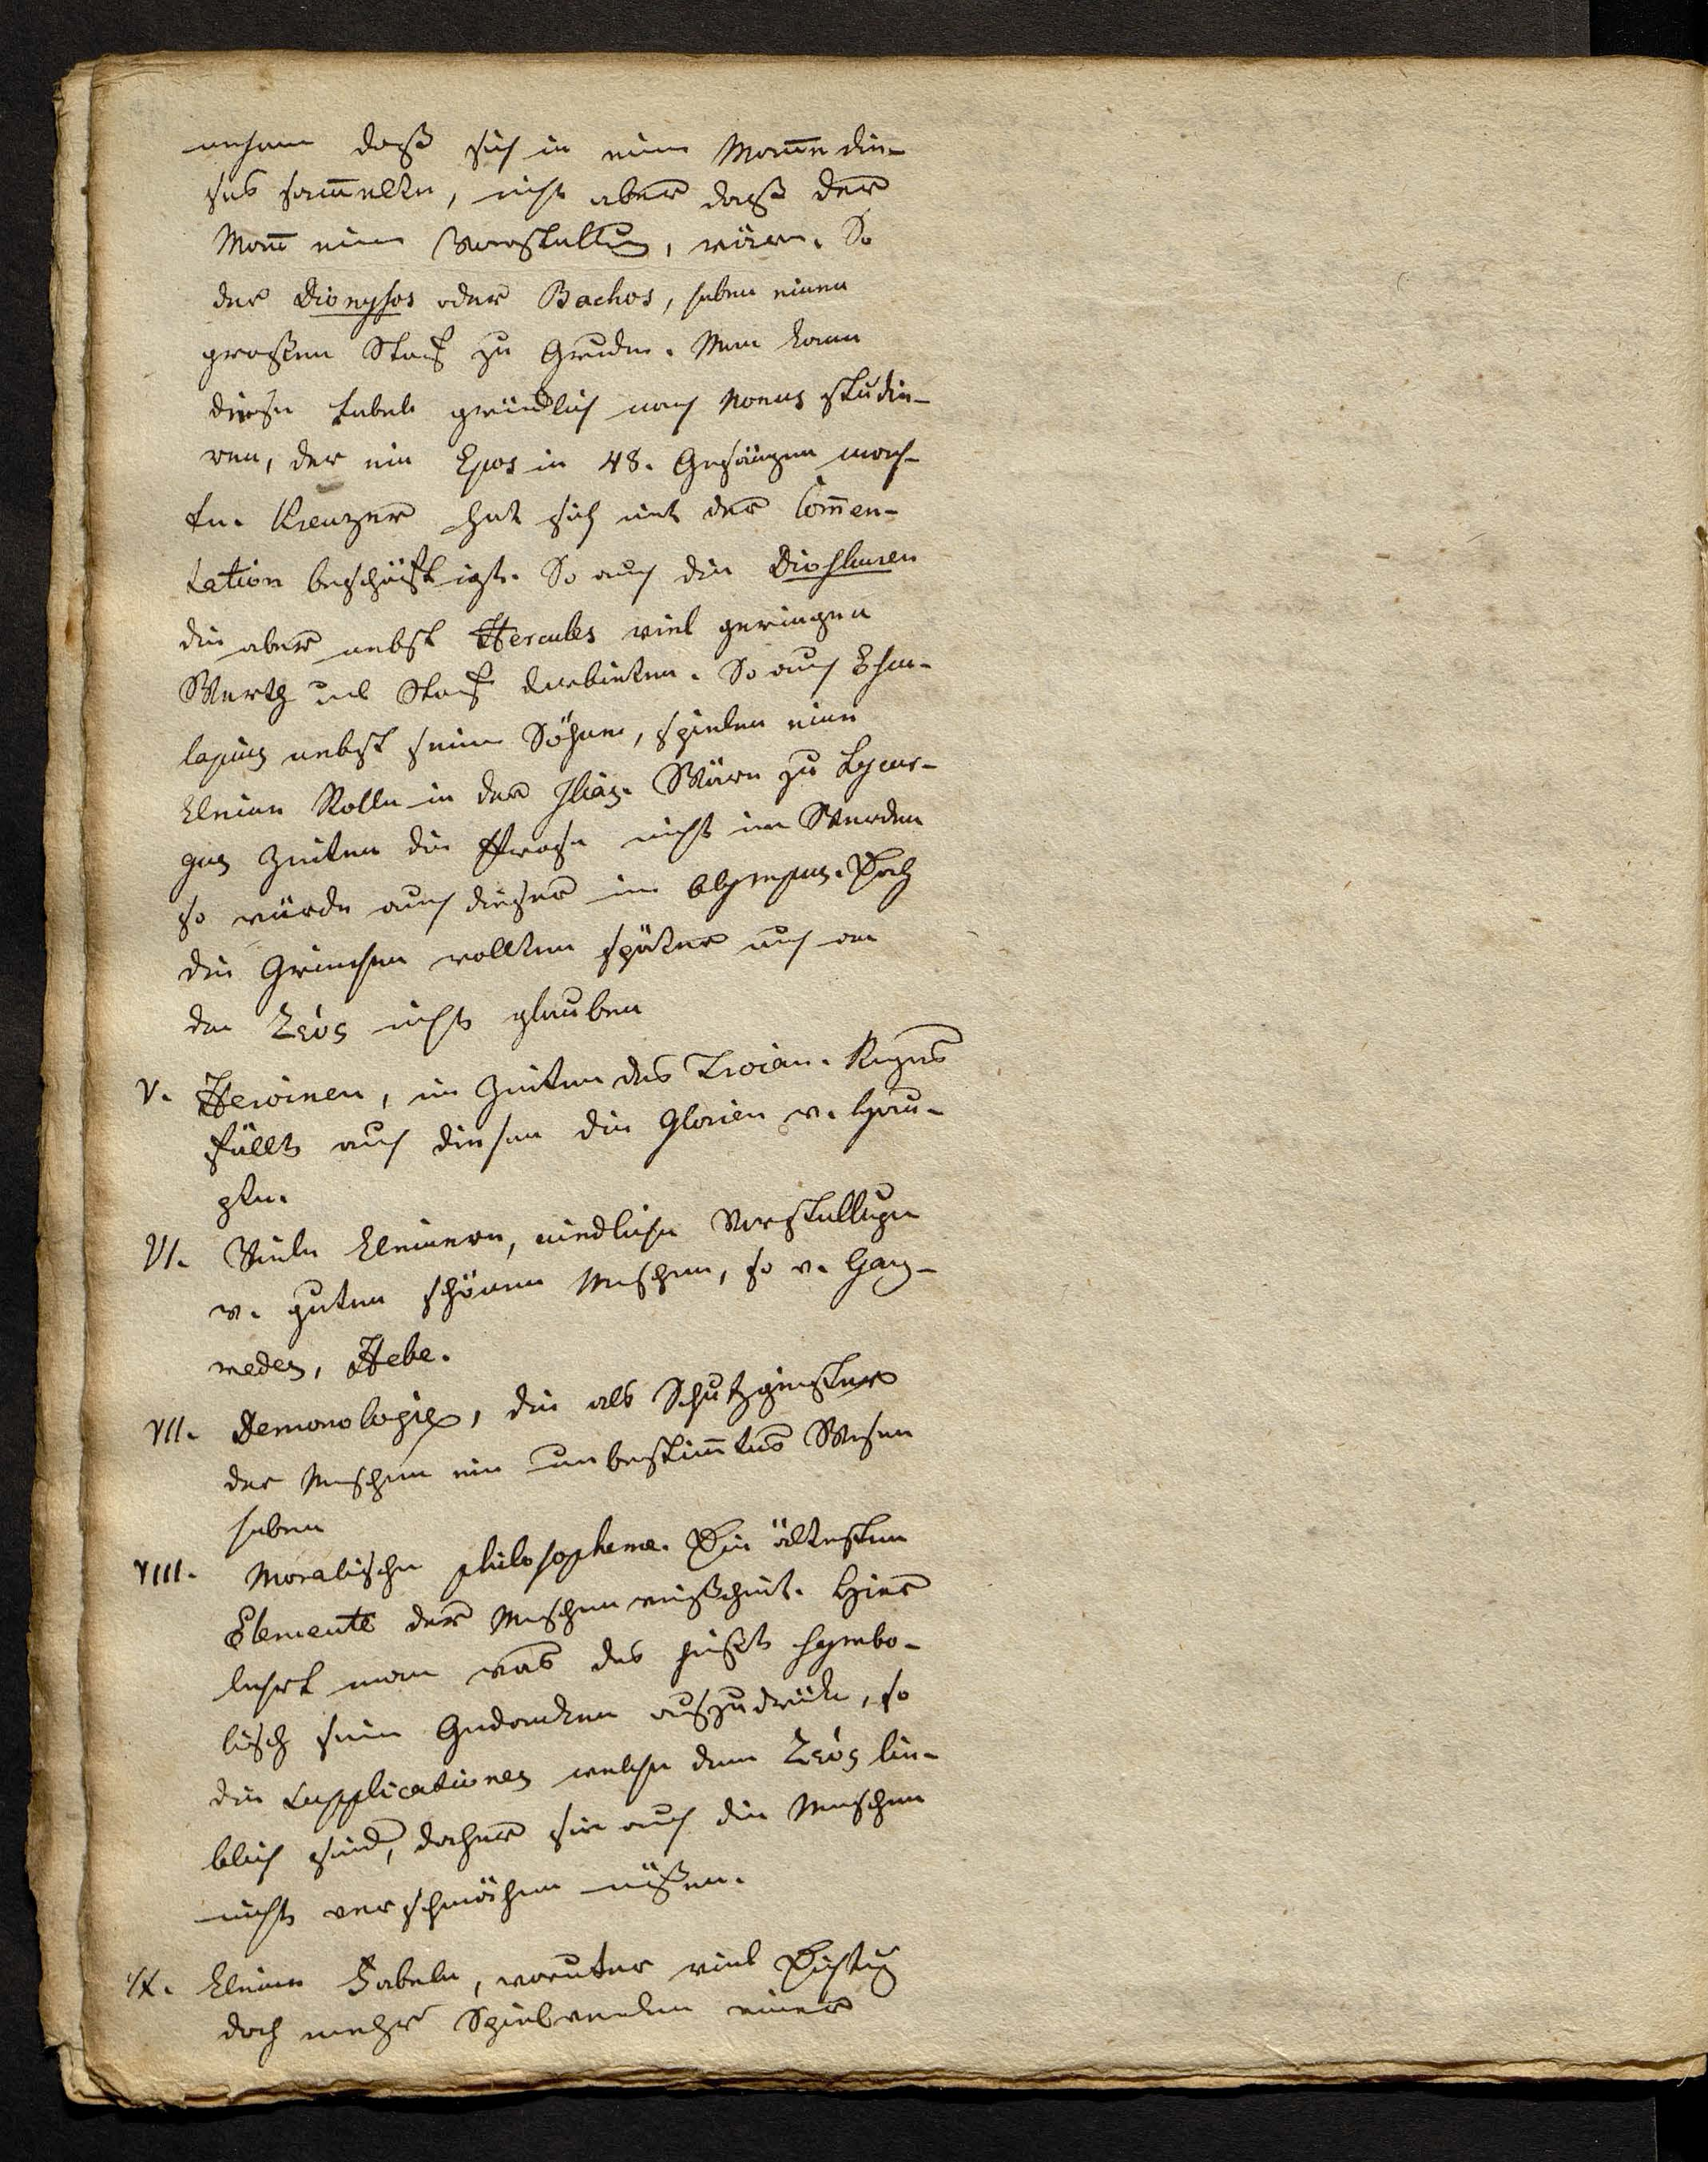 nehmen daß sich in einem Manne die-
ses sam̄elte, nicht aber daß der
Man̄ eine Vorstellung, wäre. So
der Dionysos oder Bachos, haben einen
großen Stof zu Grunde. Man kann
diese Fabeln gründlich nach Nonus studie-
ren, der ein Epos in 48. Gesängen mach-
te. Kreuzer hat sich mit der Com̄en-
tation beschäftigt. So auch die Dioskuren
die aber nebst Hercules viel geringen
Werth und Stof darbieten. So auch Esku-
lapius nebst seinen Söhnen, spielen eine
kleine Rolle in der Ilias. Wäre zu Lycur-
gus Zeiten die Prose nicht im Werden
so würde auch dieser im Olympus. Doch
die Griechen wollten später auch an
den Ζεύς nicht glauben
V. Heroinen, im Zeiten des Trojan. Kriegs
fällt auch diesen die Glorien v.
VI. Viele kleinere, niedliche Vorstellungen
v. guten schönen Menschen, so v. Gany-
medes, Hebe.
VII. Demonologie, die als Schutzgeister
der Menschen ein unbestim̄tes Wesen
haben
VIII. Moralische philosopheme. Die ältesten
Elemente der Menschen weißheit. Hier
lehrt man was das heißt symbo-
lisch seine Gedanken auszudrücken, so
die Supplicationes welche dem Ζεύς lie-
blich sind, daher sie auch die Menschen
nicht verschmähen müßen.
IX. Kleine Fabeln, worunter viel Dichtung
doch mehr Spielereien einer